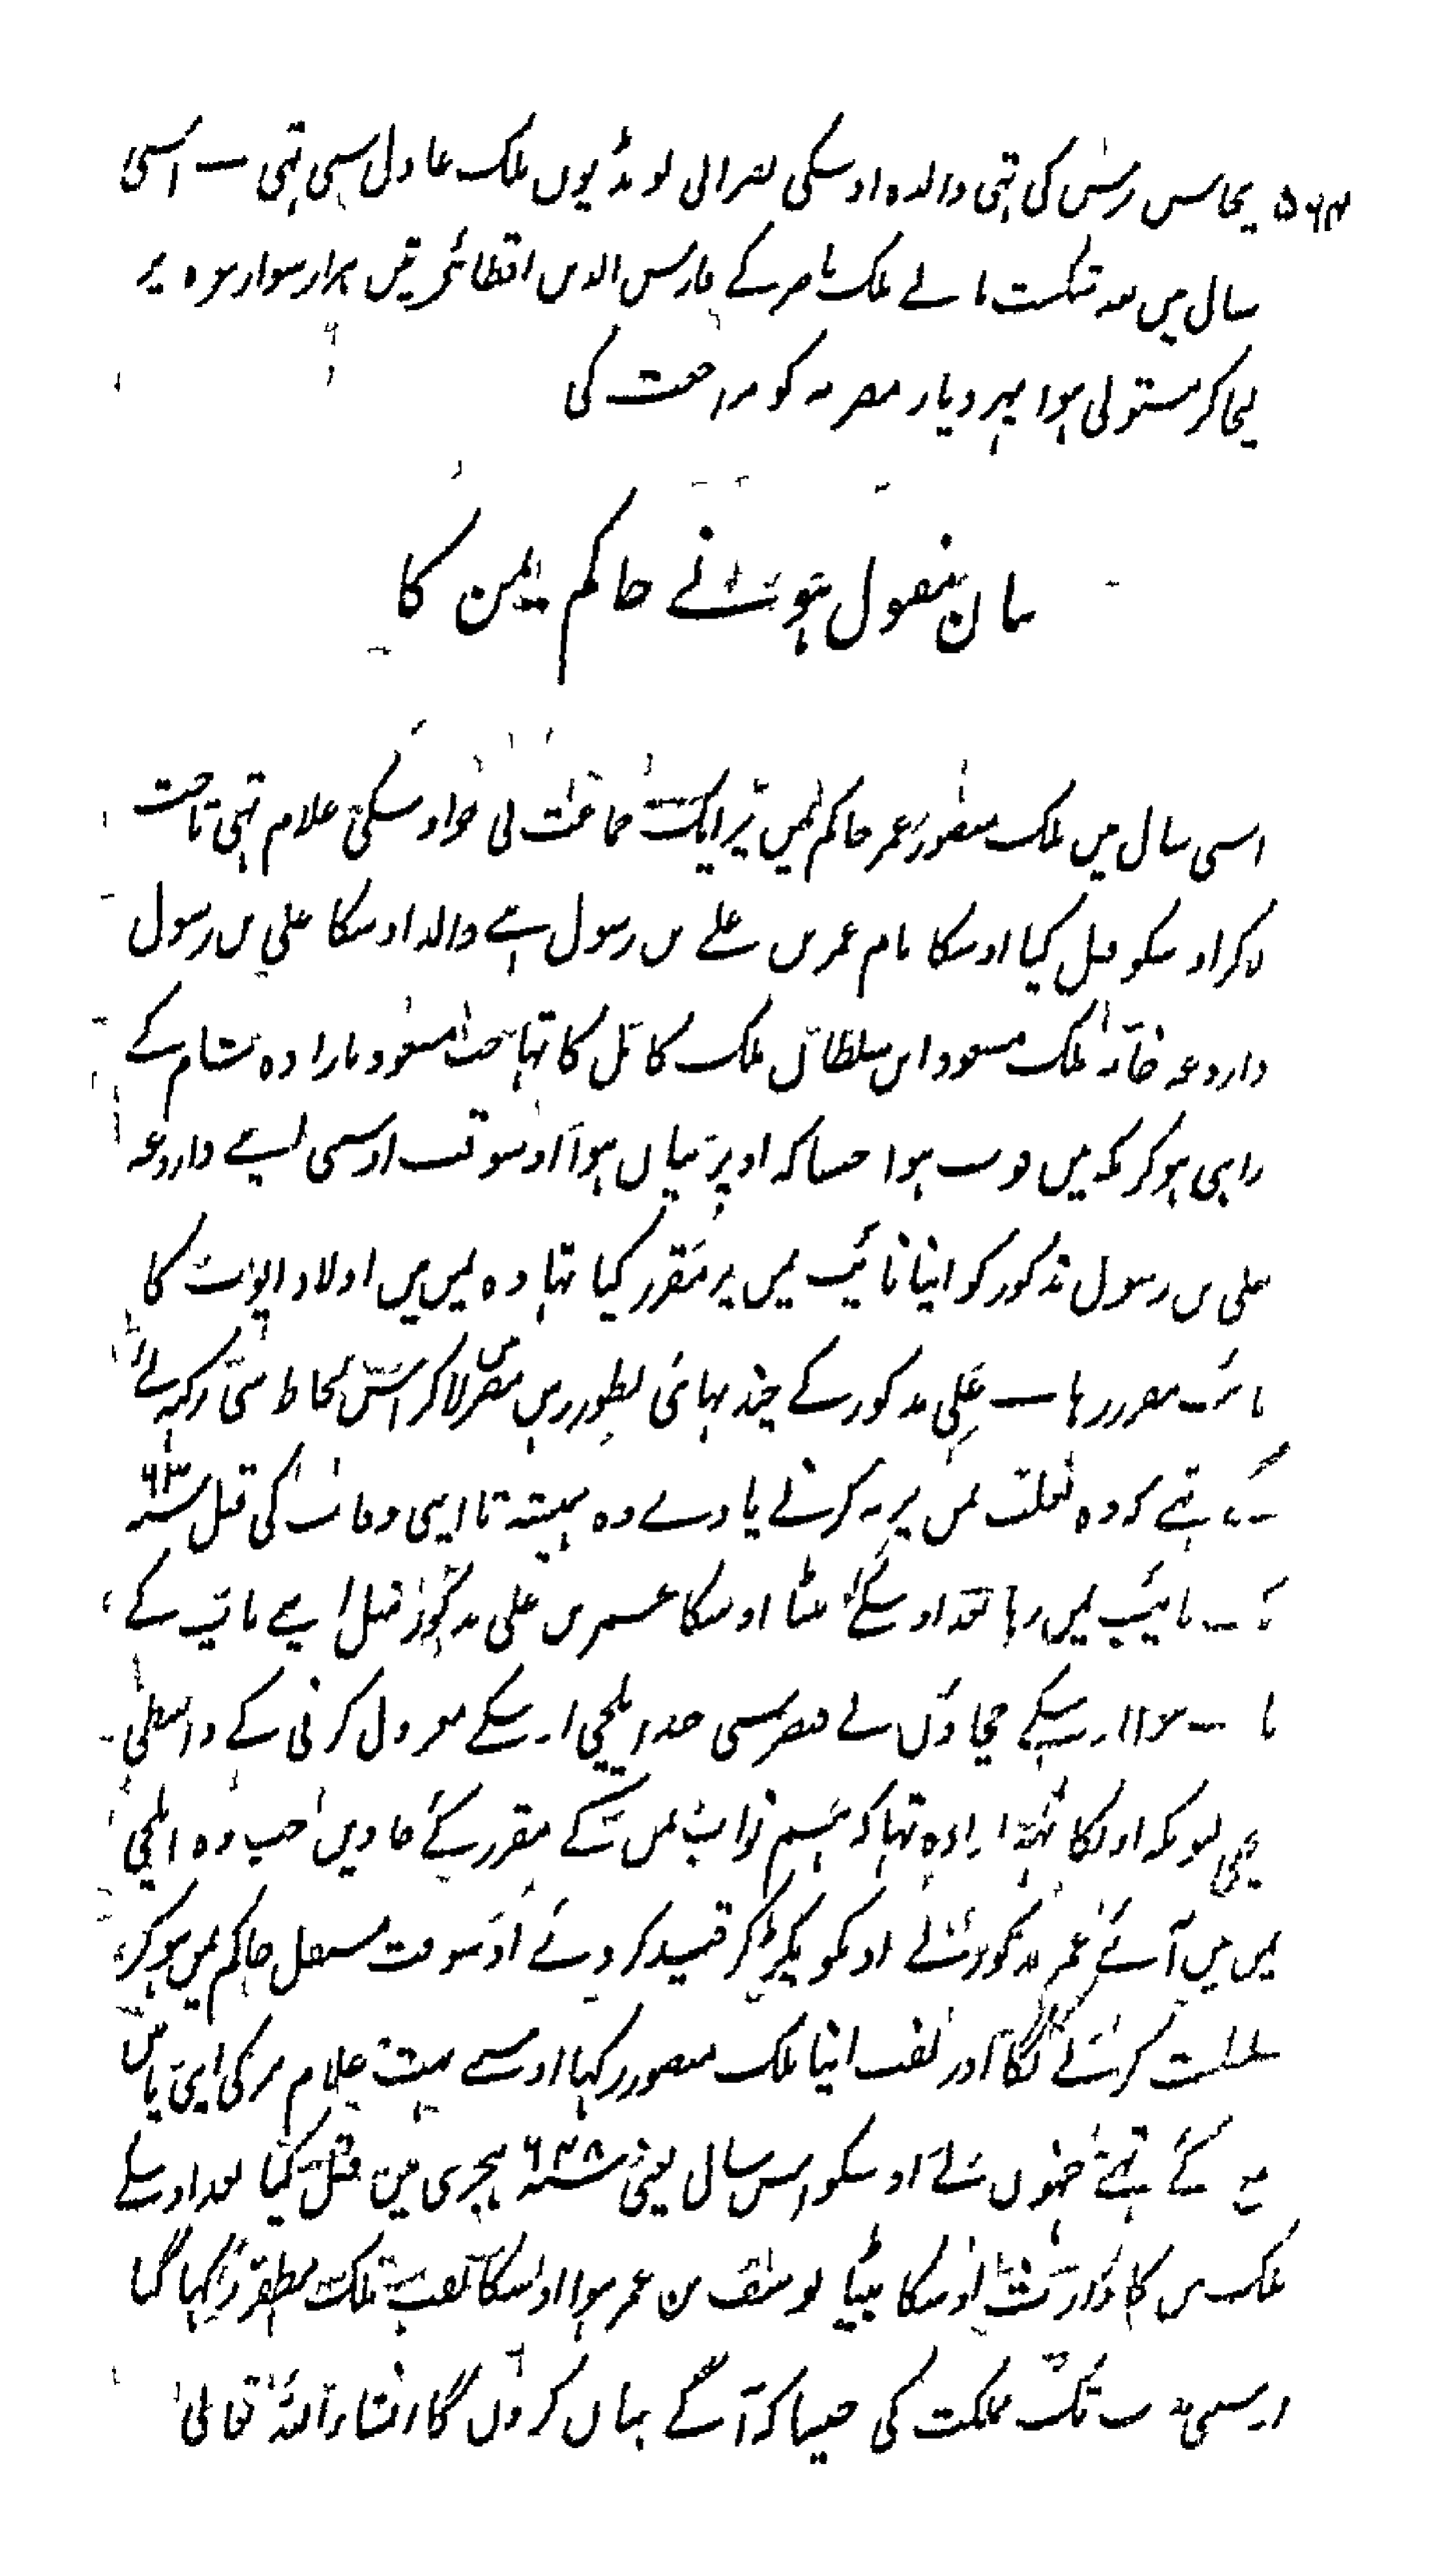 ۵۶۴ پچاس برس کی تہی والدہ اوسکی نصرانی لونڈیوں ملک عادل سی تہی — اسی
سال میں بعد شکست پانے ملک ناصر کے فارس الدین اقطائی تین ہزار سوار سے غزہ پر
لیجاکر مستولی ہوا پہر دیار مصریہ کو مراجعت کی
بیان مقتول ہونے حاکم یمن کا
اسی سال میں ملک منصور عمر حاکم یمن پر ایک جماعت نی جو اوسکی غلام تہی تاخت
لاکر اوسکو قتل کیا اوسکا نام عمر بن علے بن رسول ہے والد اوسکا علی بن رسول
داروغہ خانہ ملک مسعود ابن سلطان ملک کامل کا تہا جب مسعود بارادہ شام کے
راہی ہوکر مکہ میں فوت ہوا جیساکہ اوپر بیان ہوا اوسوقت اوسی اپنے داروغہ
علی بن رسول مذکور کو اپنا نائب یمن پر مقرر کیا تہا وہ یمن میں اولاد ایوب کا
نائب مقرر رہا — علی مذکور کے چند بہائی بطور رہن مصر میں لاکر اس لحاظ سی رکہے
گئے تہے کہ وہ تغلب یمن پر نہ کرنے پاوے وہ ہمیشہ تا اپنی وفات کی قبل سنہ ۶۳
کے نائب یمن رہا بعد اوسکے بیٹا اوسکا عمر بن علی مذکور قبل اپنے باپ کے
نائب ہوا اوسکے چچاوں نے مصر سی چند ایلچی اوسکے معزول کرنی کے واسطی
بہیجی کیونکہ اونکا یہہ ارادہ تہا کہ ہم نواب یمن کے مقرر کئے جاویں جب وہ ایلچی
یمن میں آئے عمر مذکور نے اونکو پکڑکر قید کردئے اوسوقت مستقل حاکم یمن ہوکر
سلطنت کرنے لگا اور لقب اپنا ملک منصور رکہا اوسنے بہت غلام ترکی اپنی پاس
جمع کئے تہے جنہوں نے اوسکو اس سال یعنی سنہ ۶۴۸ ہجری میں قتل کیا بعد اوسکے
ملک یمن کا وارث اوسکا بیٹا یوسف بن عمر ہوا اوسکا لقب ملک مظفر رکہا گیا
مدت تک مملکت کی جیسا کہ آگے بیان کرونگا انشاء اللہ تعالیٰ